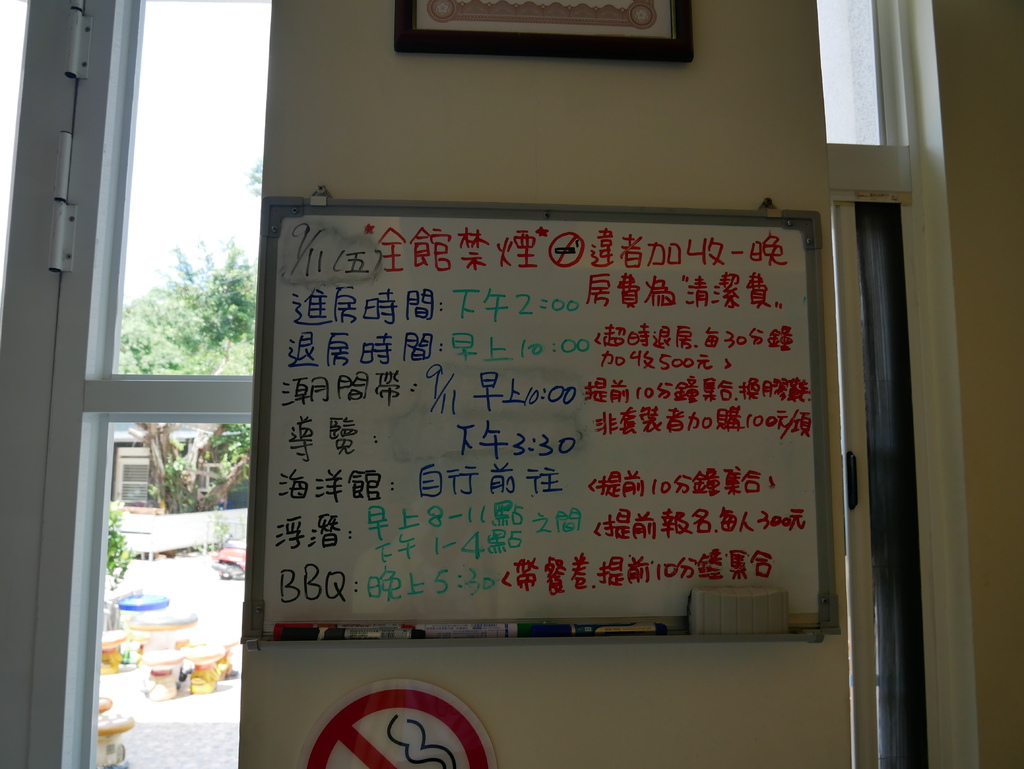 9/11(五) *全館禁煙* 違者加收一晚
房費為"清潔費"
進房時間: 下午2:00
退房時間: 早上10:00 <超時退房.每30分鐘
加收500元>
潮間帶: 9/11 早上10:00 提前10分鐘集合.換膠鞋
導覽: 下午3:30 非套裝者加購100元/項
海洋館: 自行前往 <提前10分鐘集合>
浮潛: 早上8-11點 之間 <提前報名.每人300元
下午1-4點
BBQ: 晚上5:30 <帶餐卷.提前10分鐘集合